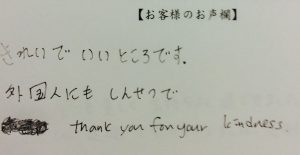 【お客様のお声欄】
きれいで いいところです.
外国人にも しんせつで
thank you for your kindness.